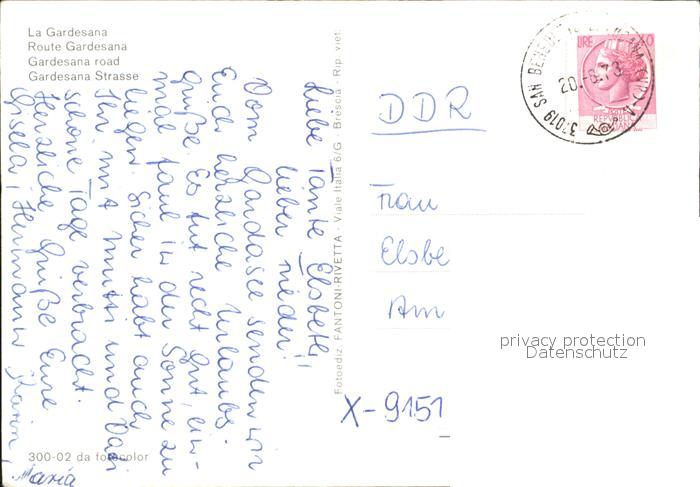 La Gardesana
Route Gardesana
Gardesana road
Gardesana Strasse
Liebe Tante Elsbeth,
lieber
Vom Gardasee senden wir
Euch herzliche Urlaubs-
grüße. Es tut recht gut, ein-
mal faul in der Sonne zu
liegen. Sicher habt auch
Ihr mit Mutti und Vati
schöne Tage verbracht.
Herzliche Grüße Eure
Gisela, Hermann, Karin,
Maria
300-02 da fotocolor
Fotoediz. FANTONI-RIVETTA - Viale Italia 6/G - Brescia - Rip. viet.
31019 SAN BENEDE
LIRE
POSTE
REPUBBLICA
ITALIANA
DDR
Frau
Elsbe
Am
privacy protection
Datenschutz
X-9151